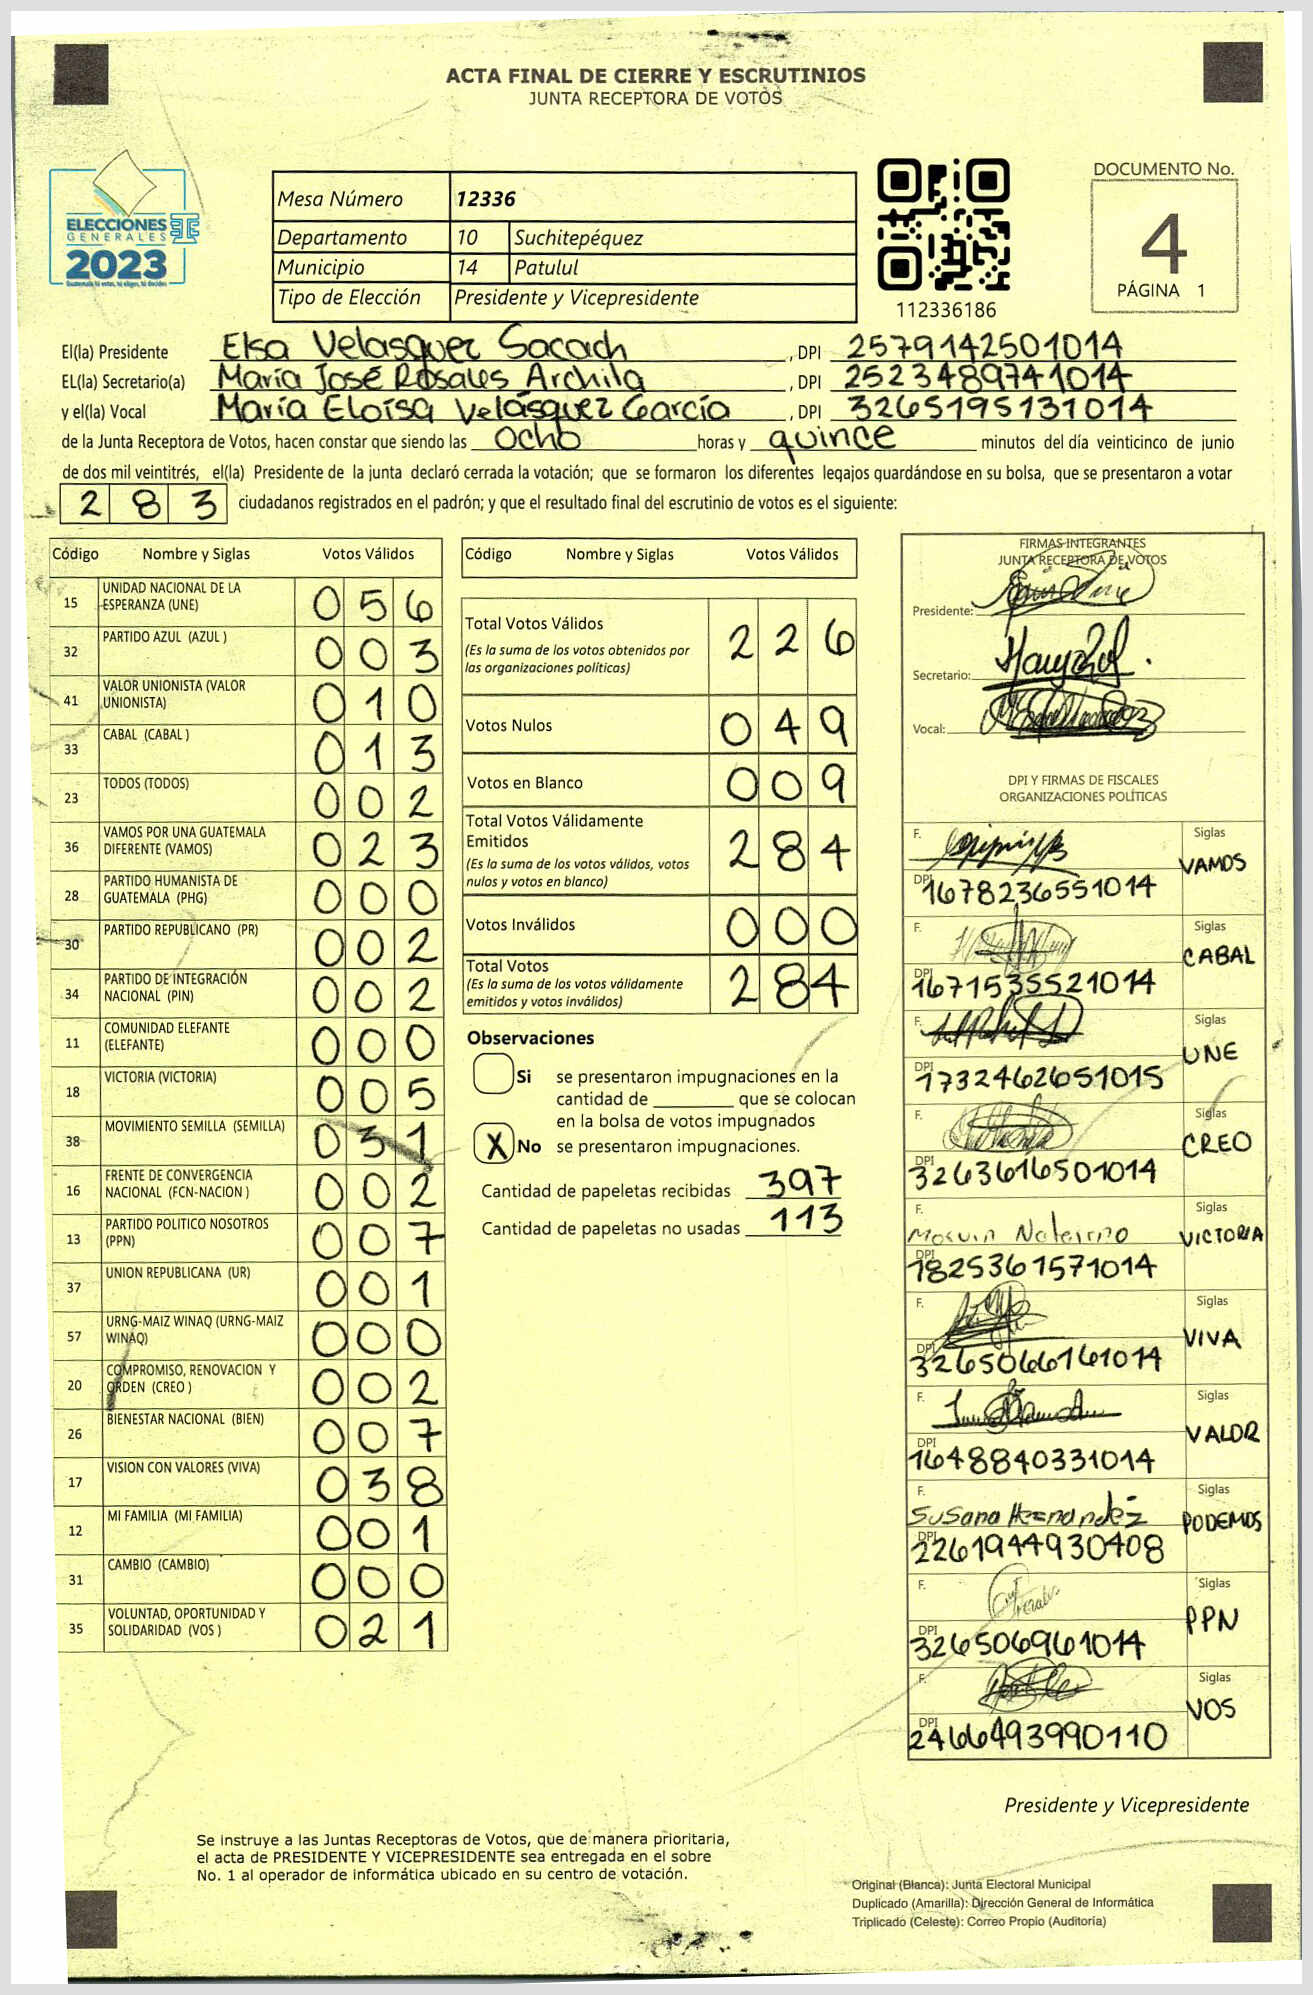 ACTA FINAL DE CIERRE Y ESCRUTINIOS
JUNTA RECEPTORA DE VOTOS
ELECCIONES
GENERALES
2023
Guatemala tú votas, tú eliges, tú decides
Mesa Número 12336
Departamento 10 Suchitepéquez
Municipio 14 Patulul
Tipo de Elección Presidente y Vicepresidente
112336186
DOCUMENTO No.
4
PÁGINA 1
El(la) Presidente Elsa Velasquez Sacach, DPI 2579142501014
EL(la) Secretario(a) María José Rosales Archila, DPI 2523489741014
y el(la) Vocal María Eloísa Velásquez García, DPI 3265195131014
de la Junta Receptora de Votos, hacen constar que siendo las ocho horas y quince minutos del día veinticinco de junio
de dos mil veintitrés, el(la) Presidente de la junta declaró cerrada la votación; que se formaron los diferentes legajos guardándose en su bolsa, que se presentaron a votar
283 ciudadanos registrados en el padrón; y que el resultado final del escrutinio de votos es el siguiente:
Código Nombre y Siglas Votos Válidos
15 UNIDAD NACIONAL DE LA ESPERANZA (UNE) 056
32 PARTIDO AZUL (AZUL ) 003
41 VALOR UNIONISTA (VALOR UNIONISTA) 010
33 CABAL (CABAL ) 013
23 TODOS (TODOS) 002
36 VAMOS POR UNA GUATEMALA DIFERENTE (VAMOS) 023
28 PARTIDO HUMANISTA DE GUATEMALA (PHG) 000
30 PARTIDO REPUBLICANO (PR) 002
34 PARTIDO DE INTEGRACIÓN NACIONAL (PIN) 002
11 COMUNIDAD ELEFANTE (ELEFANTE) 000
18 VICTORIA (VICTORIA) 005
38 MOVIMIENTO SEMILLA (SEMILLA) 031
16 FRENTE DE CONVERGENCIA NACIONAL (FCN-NACION ) 002
13 PARTIDO POLITICO NOSOTROS (PPN) 007
37 UNION REPUBLICANA (UR) 001
57 URNG-MAIZ WINAQ (URNG-MAIZ WINAQ) 000
20 COMPROMISO, RENOVACION Y ORDEN (CREO ) 002
26 BIENESTAR NACIONAL (BIEN) 007
17 VISION CON VALORES (VIVA) 038
12 MI FAMILIA (MI FAMILIA) 001
31 CAMBIO (CAMBIO) 000
35 VOLUNTAD, OPORTUNIDAD Y SOLIDARIDAD (VOS ) 021
Código Nombre y Siglas Votos Válidos
Total Votos Válidos 226
(Es la suma de los votos obtenidos por
las organizaciones políticas)
Votos Nulos 049
Votos en Blanco 009
Total Votos Válidamente
Emitidos 284
(Es la suma de los votos válidos, votos
nulos y votos en blanco)
Votos Inválidos 000
Total Votos 284
(Es la suma de los votos válidamente
emitidos y votos inválidos)
Observaciones
Si se presentaron impugnaciones en la
cantidad de ________ que se colocan
en la bolsa de votos impugnados
X No se presentaron impugnaciones.
Cantidad de papeletas recibidas 397
Cantidad de papeletas no usadas 113
FIRMAS INTEGRANTES
JUNTA RECEPTORA DE VOTOS
Presidente:
Secretario:
Vocal:
DPI Y FIRMAS DE FISCALES
ORGANIZACIONES POLÍTICAS
F. Siglas
VAMOS
DPI 1678236551014
F. Siglas
CABAL
DPI 1671535521014
F. Siglas
UNE
DPI 1732462651015
F. Siglas
CREO
DPI 3263616501014
F. Siglas
VICTORIA
DPI 1825361571014
F. Siglas
VIVA
DPI 3265066161014
F. Siglas
VALOR
DPI 1648840331014
F. Siglas
Susana Hernández PODEMOS
DPI 2261944930408
F. Siglas
PPN
DPI 326506961014
F. Siglas
VOS
DPI 2466493990110
Presidente y Vicepresidente
Se instruye a las Juntas Receptoras de Votos, que de manera prioritaria,
el acta de PRESIDENTE Y VICEPRESIDENTE sea entregada en el sobre
No. 1 al operador de informática ubicado en su centro de votación.
Original (Blanca): Junta Electoral Municipal
Duplicado (Amarilla): Dirección General de Informática
Triplicado (Celeste): Correo Propio (Auditoría)